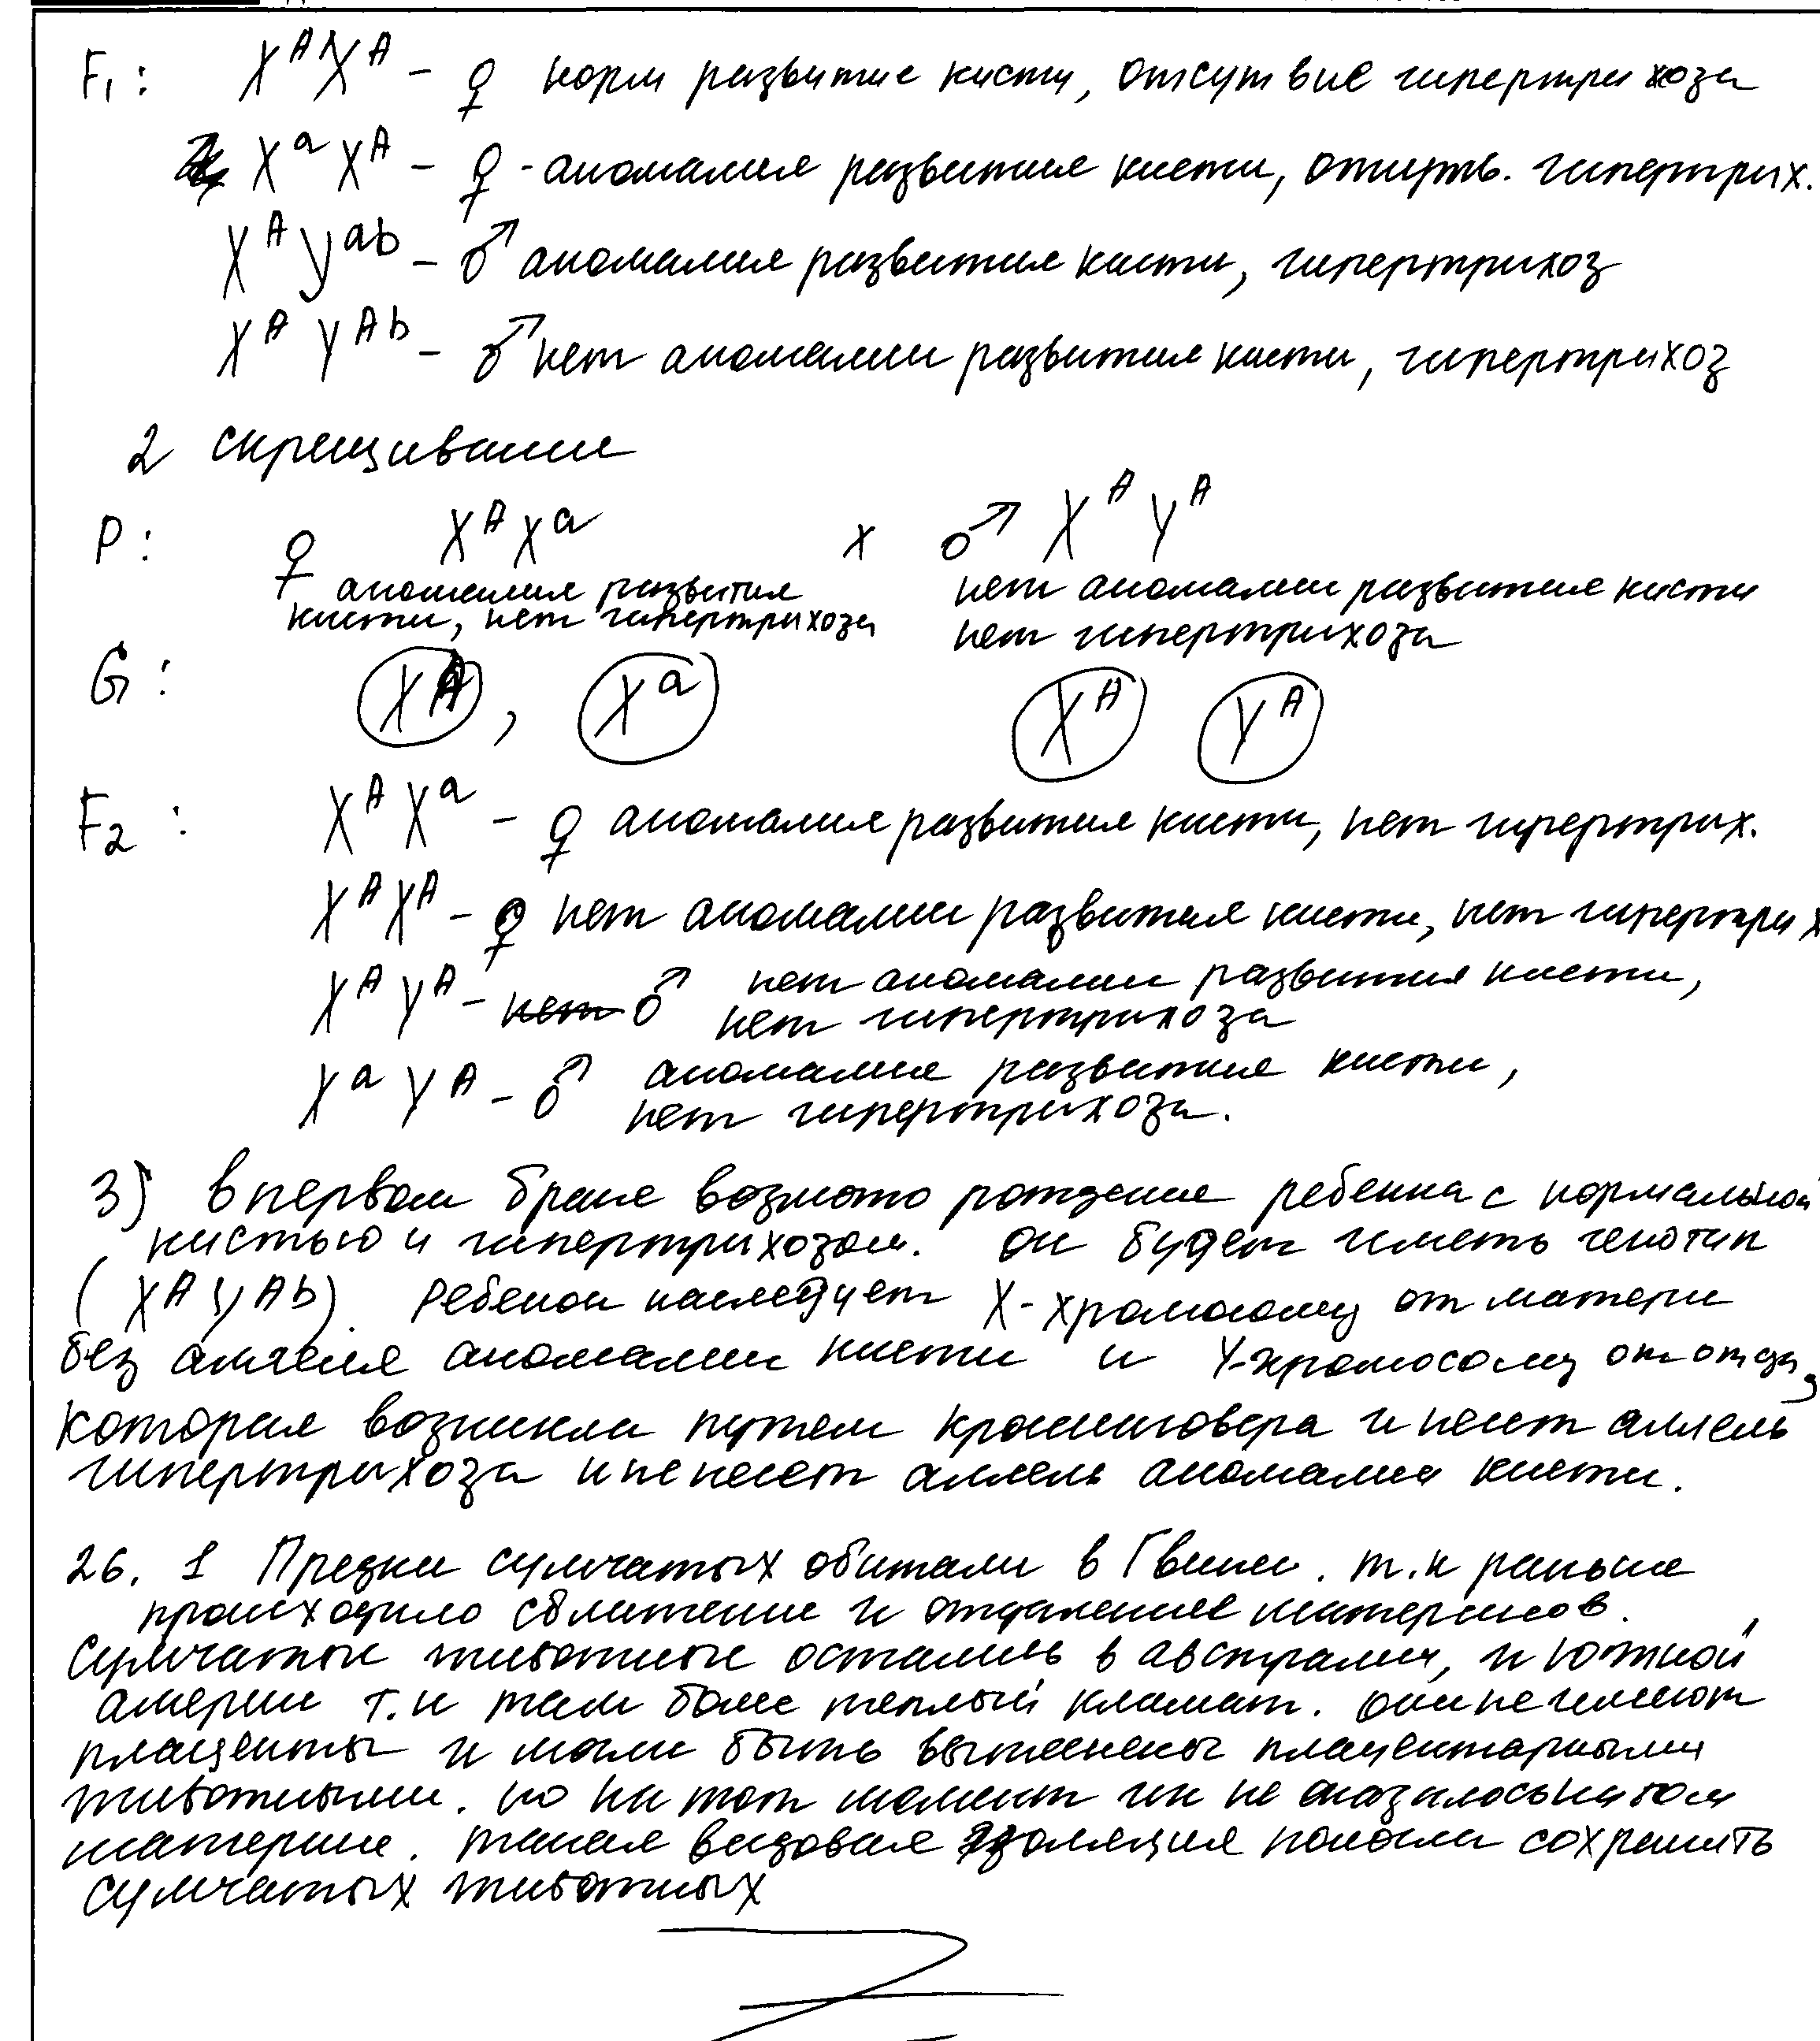 F₁: X^A X^A - ♀ норм развитие кисти, отсутвие гипертрихоза
X^a X^A - ♀ - аномалия развития кисти, отсутв. гипертрих.
X^A Y^ab - ♂ аномалия развития кисти, гипертрихоз
X^A Y^Ab - ♂ нет аномалии развития кисти, гипертрихоз
2 скрещивание
P: ♀ X^A X^a x ♂ X^A Y^A
аномалия развития нет аномалии развития кисти
кисти, нет гипертрихоза нет гипертрихоза
G: X^A, X^a X^A Y^A
F₂: X^A X^a - ♀ аномалия развития кисти, нет гипертрих.
X^A X^A - ♀ нет аномалии развития кисти, нет гипертрих
X^A Y^A - нет ♂ нет аномалии развития кисти,
нет гипертрихоза
X^a Y^A - ♂ аномалия развития кисти,
нет гипертрихоза.
3) В первом браке возможно рождение ребенка с нормальной
кистью и гипертрихозом. он будет иметь генотип
(X^A Y^Ab). Ребенок наследует X-хромосому от матери
без аллеля аномалии кисти и Y-хромосому от отца,
которая возникла путем кроссинговера и несет аллель
гипертрихоза и не несет аллель аномалия кисти.
26. 1 Предки сумчатых обитали в Гвинеи. т.к раньше
происходило сближение и отдаление материков.
Сумчатые животные остались в австралии, и южной
америи т.к там более теплый климат. они не имеют
плаценты и могли быть вытеснены плацентарными
животными. но на тот момент их не оказалось на том
материке. такая видовая изоляция помогла сохранить
сумчатых животных